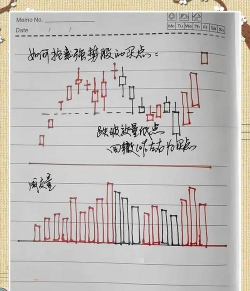 Memo No.
Mo Tu We Th Fr Sa Su
Date / /
如何找到强势股的买点:
跌破放量低点
回撤 左右为买点
成交量